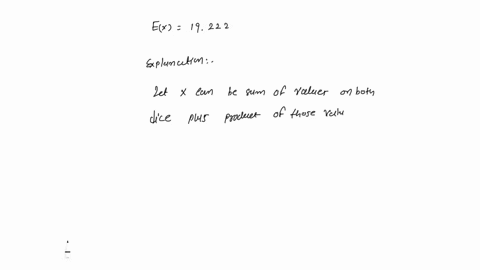 E(x) = 19.222
Explanation:.
Let x can be sum of values on both
dice plus product of those valu